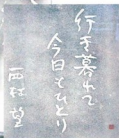 行き暮れて
今日もひとり
西村望